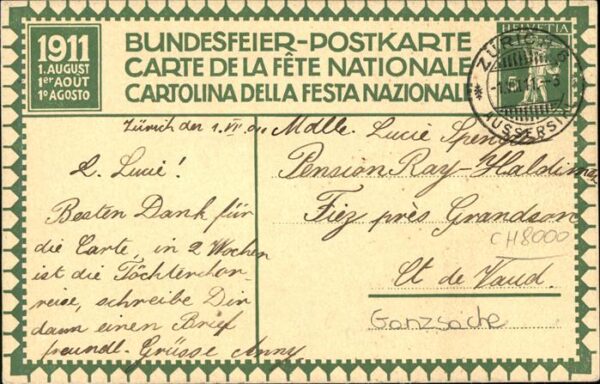 1911
1. AUGUST
1er AOUT
1º AGOSTO
BUNDESFEIER-POSTKARTE
CARTE DE LA FÊTE NATIONALE
CARTOLINA DELLA FESTA NAZIONALE
HELVETIA
5
ZÜRICH
AUSSERSIHL
Zürich den 1.
L. Lucie!
Besten Dank für
die Carte, in 2 Wochen
ist die Töchterchor-
reise, schreibe Dir
dann einen Brief
freundl. Grüsse Anny
Mdlle. Lucie
Pension Ray-Haldimann
Fiez près Grandson
Ct de Vaud.
CH8000
Ganzsache